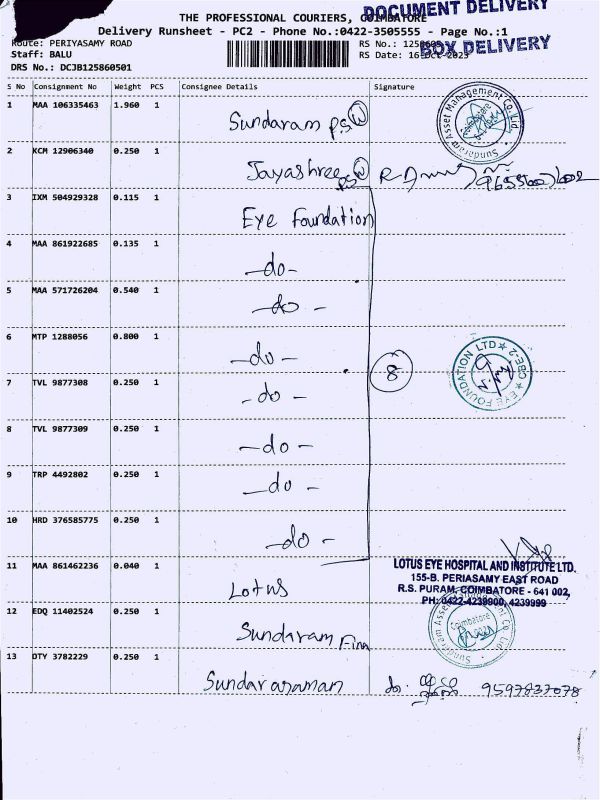 DOCUMENT DELIVERY
THE PROFESSIONAL COURIERS, COIMBATORE
Delivery Runsheet - PC2 - Phone No.:0422-3505555 - Page No.:1
Route: PERIYASAMY ROAD
RS No.: 1258605
BOX DELIVERY
Staff: BALU
RS Date: 16-Oct-2023
DRS No.: DCJB125860501
S No Consignment No Weight PCS Consignee Details Signature
1 MAA 106335463 1.960 1 Sundaram P.S W
Sundaram Asset Management Co. Ltd. Coimbatore
2 KCM 12906340 0.250 1 Jayashree PS W
3 IXM 504929328 0.115 1 Eye Foundation
4 MAA 861922685 0.135 1 -do-
5 MAA 571726204 0.540 1 -do-
6 MTP 1288056 0.800 1 -do-
8
EYE FOUNDATION LTD CBE-2
7 TVL 9877308 0.250 1 -do-
8 TVL 9877309 0.250 1 -do-
9 TRP 4492802 0.250 1 -do-
10 HRD 376585775 0.250 1 -do-
11 MAA 861462236 0.040 1 Lotus
LOTUS EYE HOSPITAL AND INSTITUTE LTD.
155-B. PERIASAMY EAST ROAD
R.S. PURAM, COIMBATORE - 641 002,
PH: 0422-4239900, 4239999
12 EDQ 11402524 0.250 1 Sundaram Finn
Coimbatore
13 DTY 3782229 0.250 1 Sundararaman 9597837078